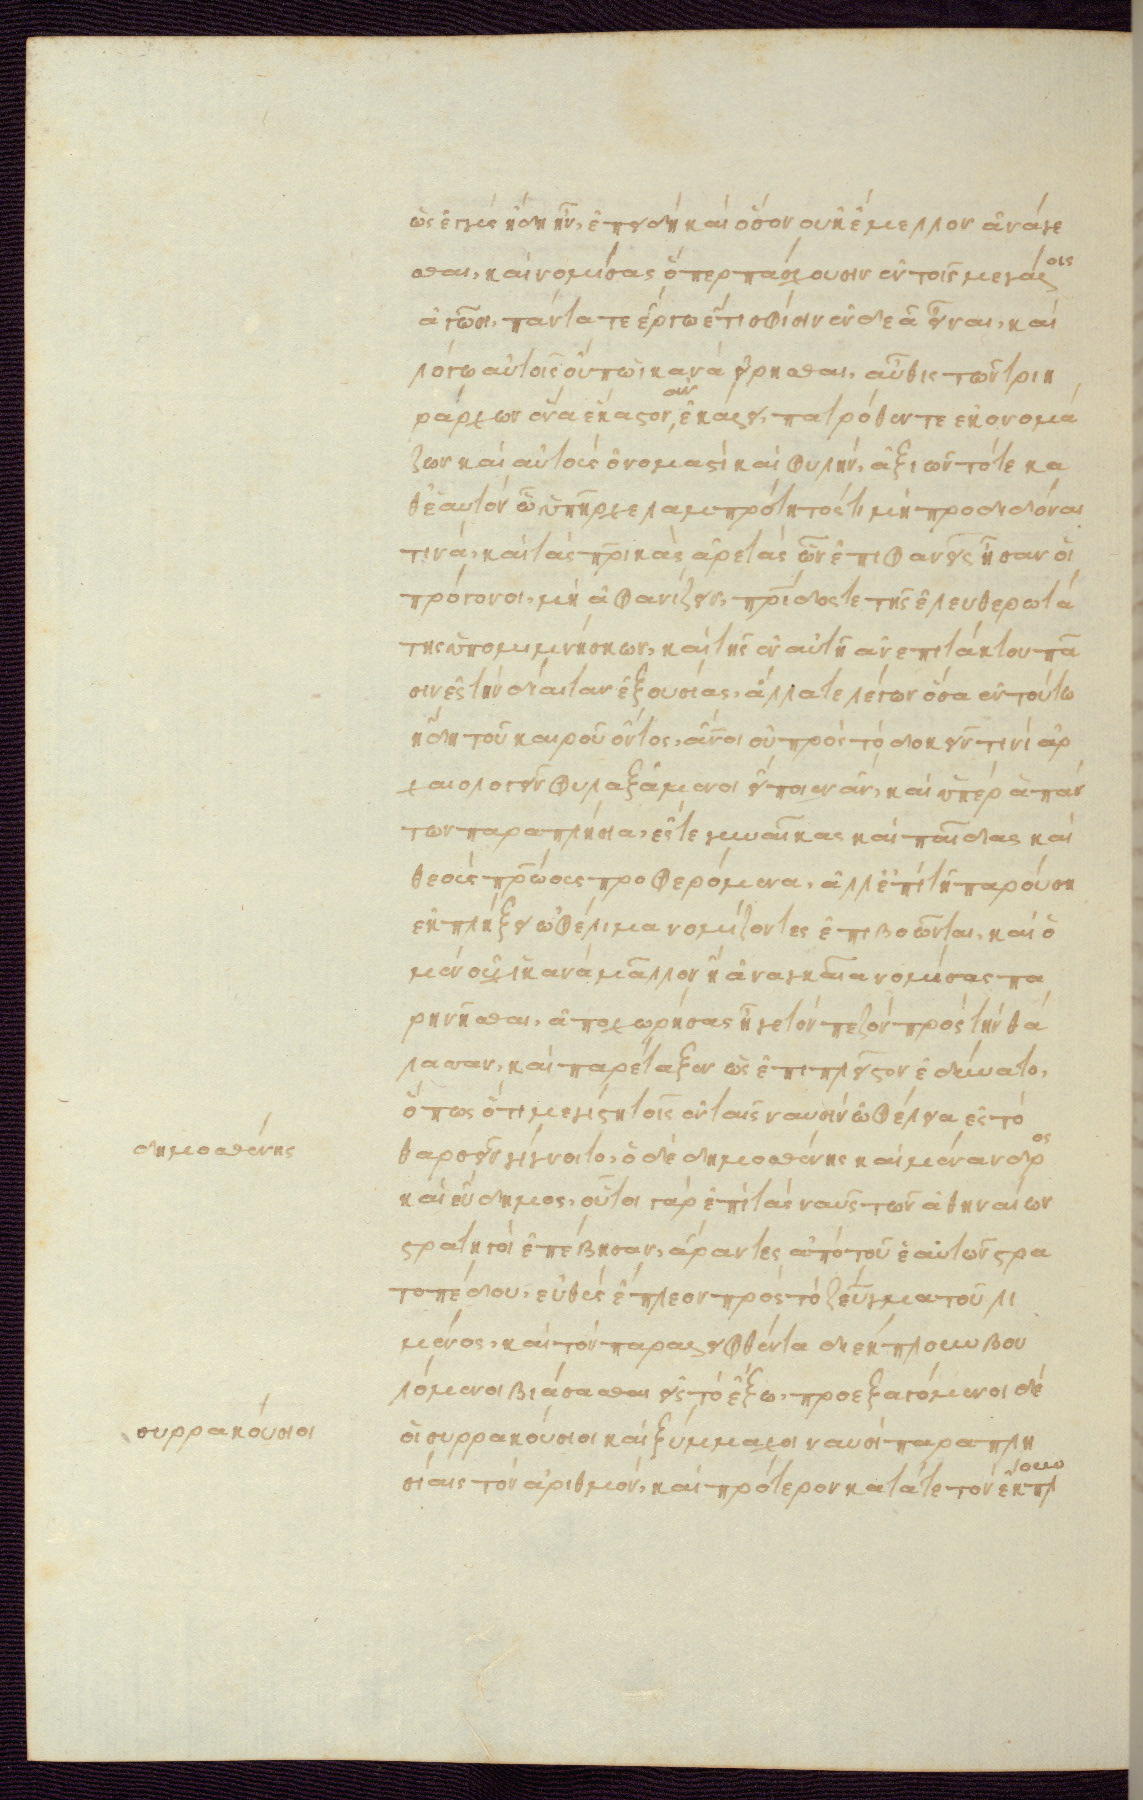 ὡς ἐγγὺς ἤδη ἦν, ἐπειδὴ καὶ ὅσον οὐκ ἔμελλον ἀνάγε
σθαι, καὶ νομίσας ὅπερ πάσχουσιν ἐν τοῖς μεγάλοις
ἀγῶσι, πάντα τε ἔργω ἔτι σφίσιν ἐνδεᾶ εἶναι, καὶ
λόγω αὐτοῖς οὔπω ἱκανὰ εἰρῆσθαι, αὖθις τῶν τριη
ράρχων ἕνα ἕκαστον ἀνεκάλει, πατρόθεν τε ἐπονομά
ζων καὶ αὐτοὺς ὀνομαστὶ καὶ φυλήν, ἀξιῶν τό τε κα
θ' ἑαυτὸν ᾧ ὑπῆρχε λαμπρότητός τι μὴ προδιδόναι
τινά, καὶ τὰς πρικὰς ἀρετὰς ὧν ἐπιφανεῖς ἦσαν οἱ
πρόγονοι, μὴ ἀφανίζειν, πρίδος τε τῆς ἐλευθερωτά
της ὑπομιμνήσκων, καὶ τῆς ἐν αὐτῆ ἀνεπιτάκτου πᾶ
σιν ἐς τὴν δίαιταν ἐξουσίας, ἄλλα τε λέγων ὅσα ἐν τούτω
ἤδη τοῦ καιροῦ ὄντος, ἄνοι οὐ πρὸς τὸ δοκεῖν τινὶ ἀρ
χαιολογεῖν φυλαξάμενοι εἴποιεν ἄν, καὶ ὑπὲρ ἁπάν
των παραπλήσια, ἔς τε γυναῖκας καὶ παῖδας καὶ
θεοὺς πρώους προφερόμενα, ἀλλ' ἐπὶ τῆ παρούση
ἐκπλήξει ὠφέλιμα νομίζοντες ἐπιβοῶνται, καὶ ὁ
μὲν οὐχ ἱκανὰ μᾶλλον ἢ ἀναγκαῖα νομίσας πα
ρηνῆσθαι, ἀποχωρήσας ἦγε τὸν πεζὸν πρὸς τὴν θά
λασσαν, καὶ παρέταξεν ὡς ἐπὶ πλεῖστον ἐδύνατο,
ὅπως ὅτι μεγίστη τοῖς ἐν ταῖς ναυσὶν ὠφέλεια ἐς τὸ
θαρσεῖν γίγνοιτο, ὁ δὲ δημοσθένης καὶ μένανδρος
καὶ εὔδημος, οὗτοι γὰρ ἐπὶ τὰς ναῦς τῶν ἀθηναίων
στρατηγοὶ ἐπέβησαν, ἄραντες ἀπὸ τοῦ ἑαυτῶν στρα
τοπέδου, εὐθὺς ἔπλεον πρὸς τὸ ζεῦγμα τοῦ λι
μένος, καὶ τὸν παραλειφθέντα διέκπλουν βου
λόμενοι βιάσασθαι εἰς τὸ ἔξω, προεξαγόμενοι δὲ
οἱ συρρακούσιοι καὶ ξύμμαχοι ναυσὶ παραπλη
σίαις τὸν ἀριθμόν, καὶ πρότερον κατά τε τὸν ἔκπλουν
δημοσθένης
συρρακούσιοι